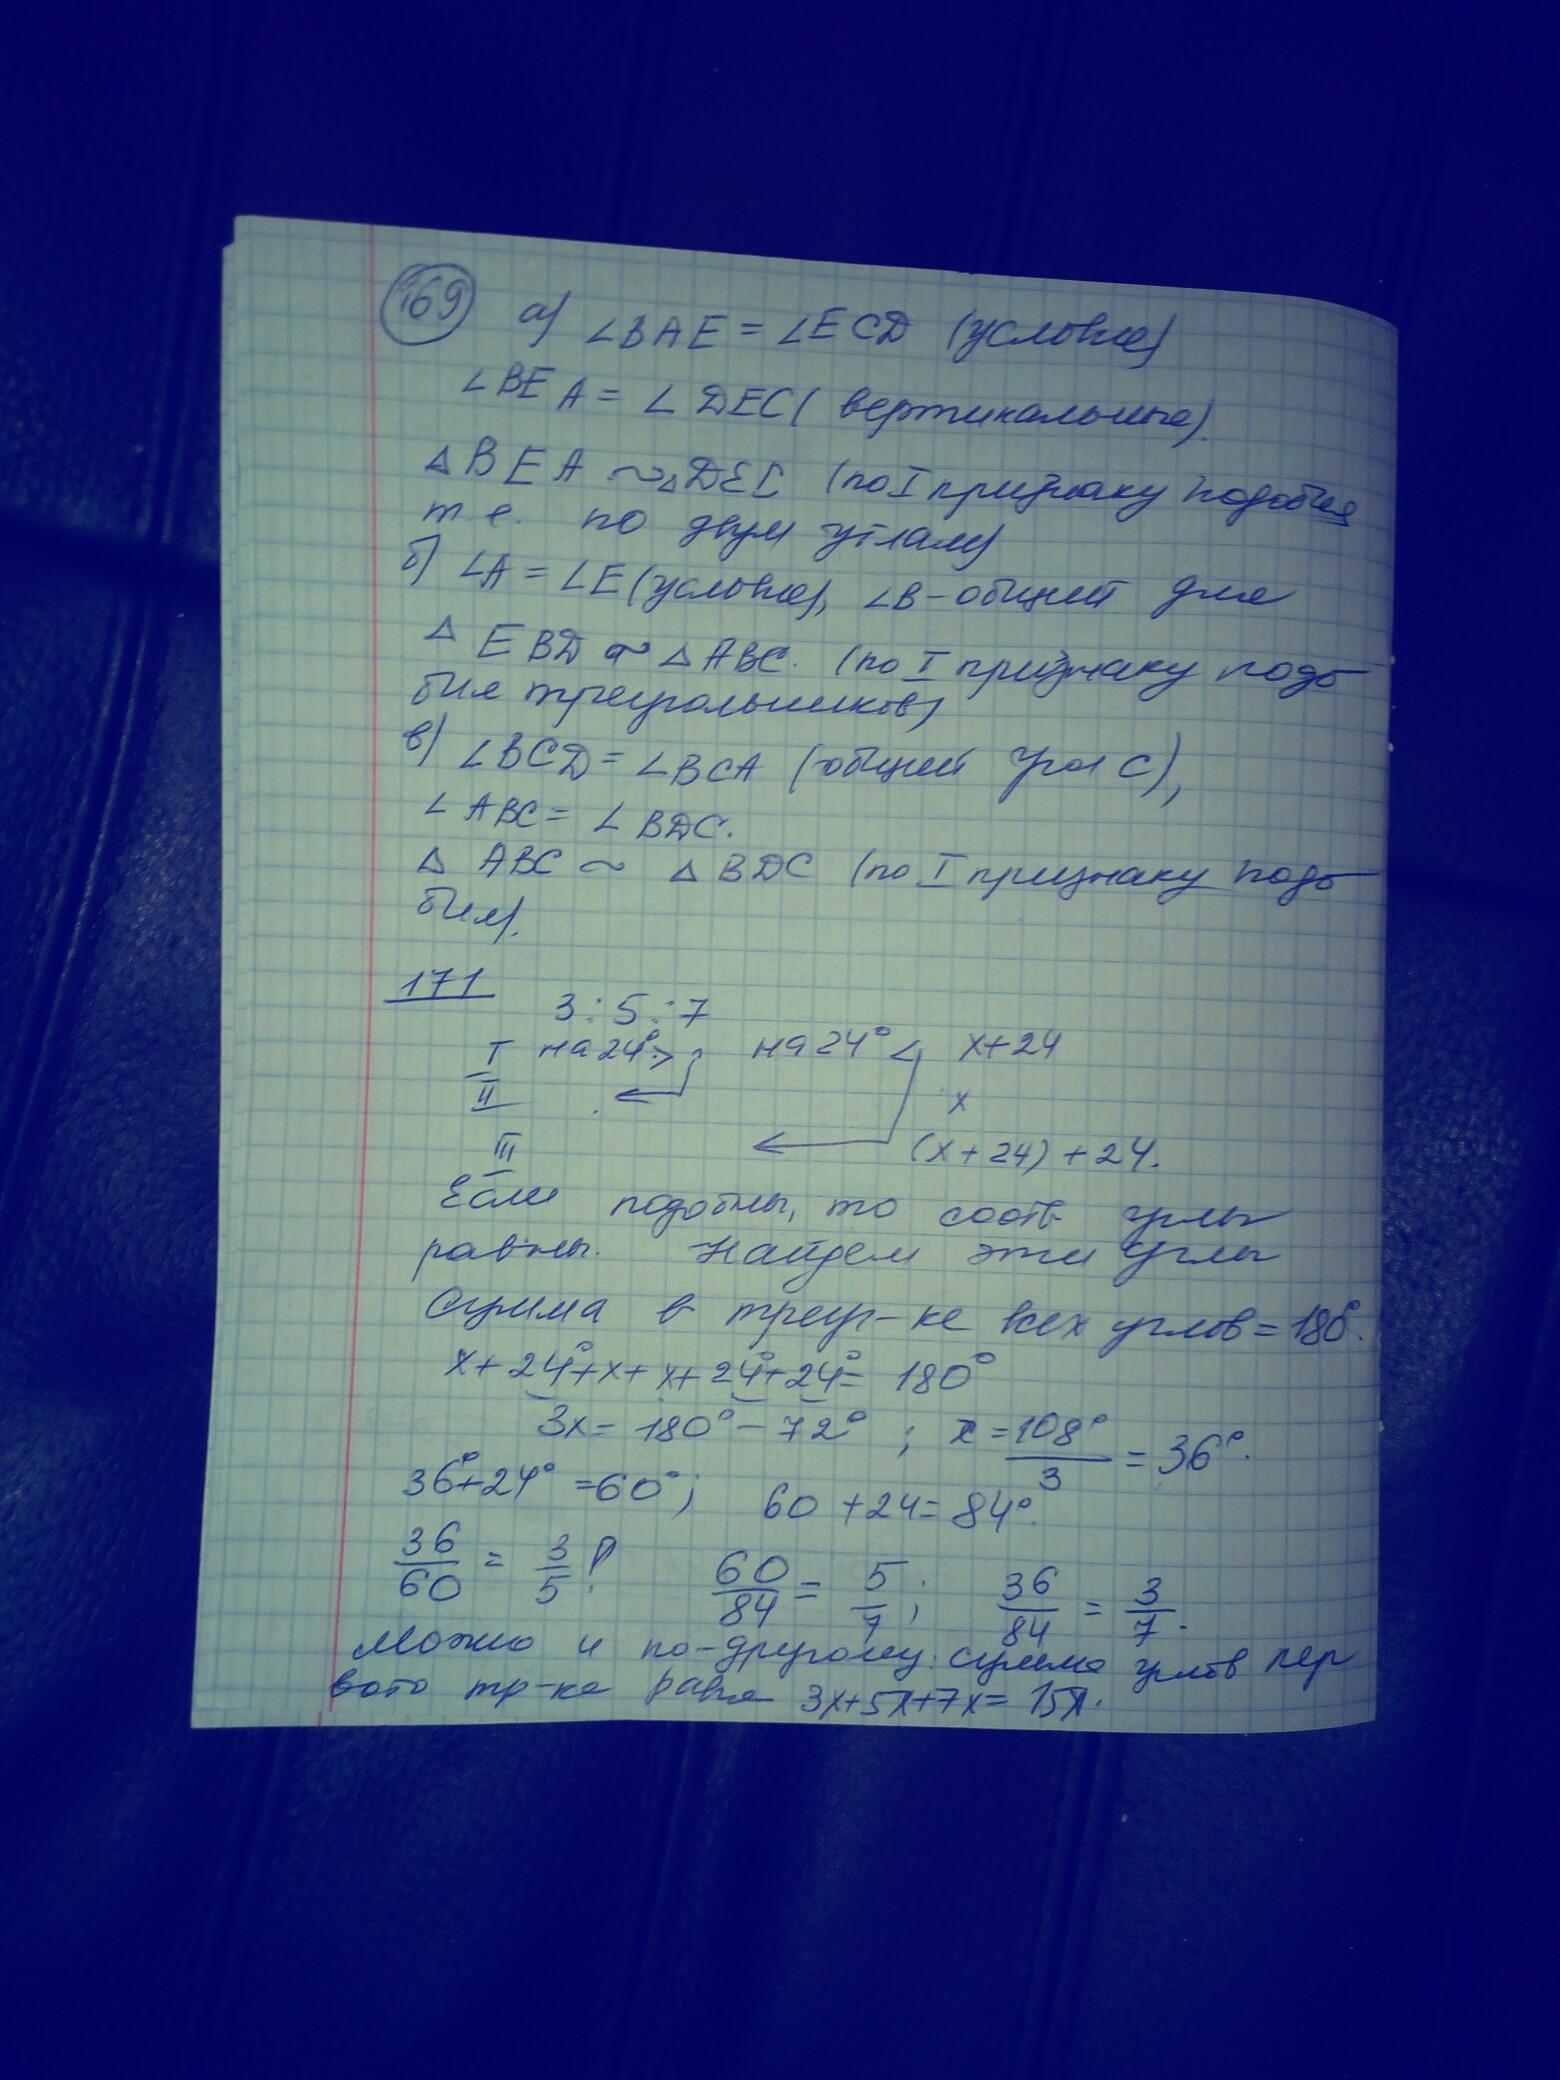 169 а) ∠BAE = ∠ECD (условие)
∠BEA = ∠DEC (вертикальные).
△BEA ~ △DEC (по I признаку подобия
т.е. по двум углам)
б) ∠A = ∠E (условие), ∠B - общий для
△EBD ~ △ABC. (по I признаку подо
бия треугольников)
в) ∠BCD = ∠BCA (общий угол C),
∠ABC = ∠BDC.
△ABC ~ △BDC (по I признаку подо
бия).
171
3:5:7
I на 24° > на 24° < x+24
II x
III (x+24)+24.
Если подобны, то соотв углы
равны. Найдем эти углы
Сумма в треуг-ке всех углов = 180°.
x+24°+x+x+24°+24° = 180°
3x = 180° - 72° ; x = 108°/3 = 36°.
36°+24° = 60°; 60+24 = 84°.
36/60 = 3/5! 60/84 = 5/7; 36/84 = 3/7.
Можно и по-другому: сумма углов пер
вого тр-ка равна 3x+5x+7x = 15x.